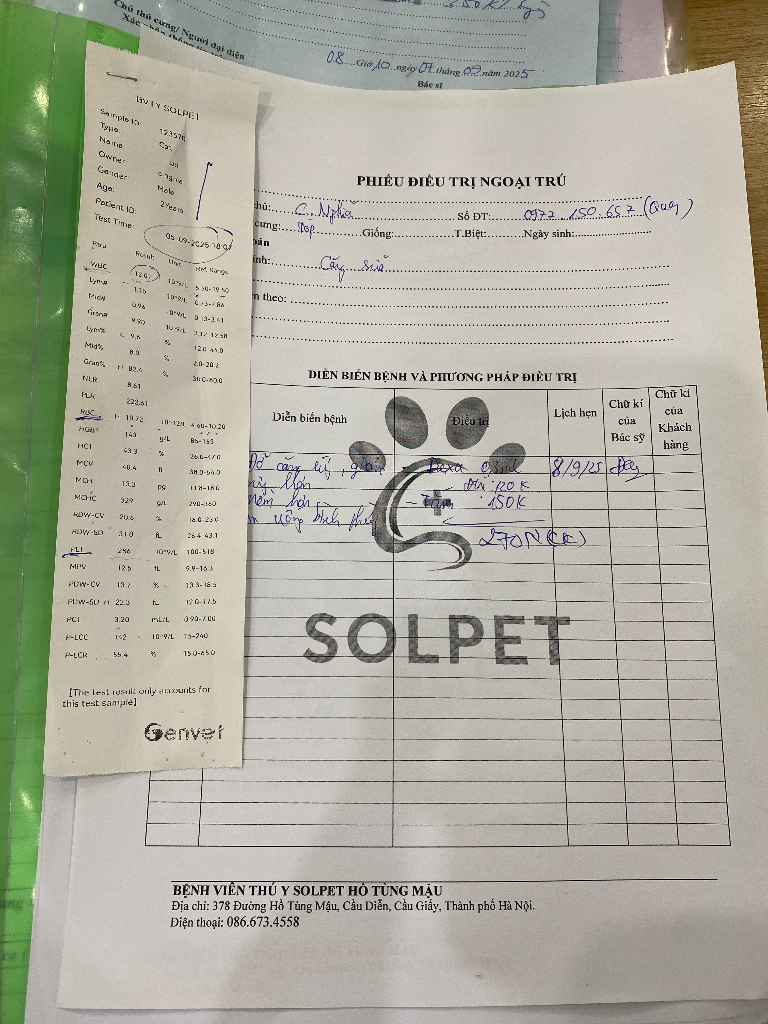 Chủ thú cưng/ Người đại diện
08 Giờ 10 ngày 07 tháng 09 năm 2025
Bác sĩ
BVTY SOLPET
Sample ID: 123578
Type: Cat
Name
Owner: c nghia
Gender: Male
Age: 2Years
Patient ID:
Test Time: 06-09-2025 18:0
Para Result Unit Ref. Range
WBC 12.01 10^9/L 5.50-19.50
Lym# 1.15 10^9/L 0.73-7.86
Mid# 0.96 10^9/L 0.13-3.41
Gran# 9.90 10^9/L 3.12-12.58
Lym% L 9.6 % 12.0-45.0
Mid% 8.0 % 2.0-20.2
Gran% H 82.4 % 30.0-80.0
NLR 8.61
PLR 222.61
RBC H 10.72 10^12/L 4.60-10.20
HGB 143 g/L 85-153
HCT 43.3 % 26.0-47.0
MCV 40.4 fL 38.0-54.0
MCH 13.3 pg 11.8-18.0
MCHC 329 g/L 290-360
RDW-CV 20.6 % 16.0-23.0
RDW-SD 31.0 fL 26.4-43.1
PLT 256 10^9/L 100-518
MPV 12.5 fL 9.9-16.3
PDW-CV 13.7 % 13.3-18.5
PDW-SD H 22.3 fL 12.0-17.5
PCT 3.20 mL/L 0.90-7.00
P-LCC 142 10^9/L 15-240
P-LCR 55.4 % 15.0-65.0
[The test result only accounts for
this test sample]
Genvet
PHIẾU ĐIỀU TRỊ NGOẠI TRÚ
hủ: C. Nghĩa Số ĐT: 0977 150 657 (Quay)
cưng: Tép Giống: T.Biệt: Ngày sinh:
oán
ính: Căng sữa
m theo:
DIỄN BIẾN BỆNH VÀ PHƯƠNG PHÁP ĐIỀU TRỊ
Diễn biến bệnh Điều trị Lịch hẹn Chữ kí của Bác sỹ Chữ kí của Khách hàng
Đỡ căng tuý, giảm - Dexa 0,3ml 8/9/25
120K
mềm hơn - Tiêm 150K
ăn uống bình thường
270N (CK)
SOLPET
BỆNH VIÊN THÚ Y SOLPET HỒ TÙNG MẬU
Địa chỉ: 378 Đường Hồ Tùng Mậu, Cầu Diễn, Cầu Giấy, Thành phố Hà Nội.
Điện thoại: 086.673.4558